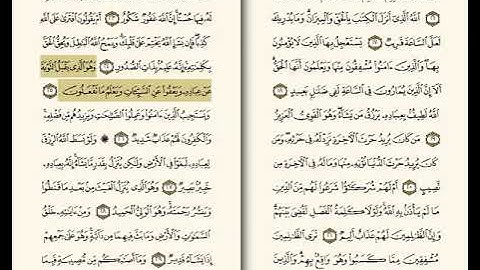 ١٦ ٱللَّهُ ٱلَّذِىٓ أَنزَلَ ٱلْكِتَٰبَ بِٱلْحَقِّ وَٱلْمِيزَانَ وَمَا يُدْرِيكَ
لَعَلَّ ٱلسَّاعَةَ قَرِيبٌ ١٧ يَسْتَعْجِلُ بِهَا ٱلَّذِينَ لَا يُؤْمِنُونَ
بِهَا وَٱلَّذِينَ ءَامَنُوا۟ مُشْفِقُونَ مِنْهَا وَيَعْلَمُونَ أَنَّهَا ٱلْحَقُّ
أَلَآ إِنَّ ٱلَّذِينَ يُمَارُونَ فِى ٱلسَّاعَةِ لَفِى ضَلَٰلٍۭ بَعِيدٍ ١٨
ٱللَّهُ لَطِيفٌۢ بِعِبَادِهِۦ يَرْزُقُ مَن يَشَآءُ وَهُوَ ٱلْقَوِىُّ ٱلْعَزِيزُ
١٩ مَن كَانَ يُرِيدُ حَرْثَ ٱلْءَاخِرَةِ نَزِدْ لَهُۥ فِى حَرْثِهِۦ وَمَن
كَانَ يُرِيدُ حَرْثَ ٱلدُّنْيَا نُؤْتِهِۦ مِنْهَا وَمَا لَهُۥ فِى ٱلْءَاخِرَةِ مِن
نَّصِيبٍ ٢٠ أَمْ لَهُمْ شُرَكَٰٓؤُا۟ شَرَعُوا۟ لَهُم مِّنَ ٱلدِّينِ
مَا لَمْ يَأْذَنۢ بِهِ ٱللَّهُ وَلَوْلَا كَلِمَةُ ٱلْفَصْلِ لَقُضِىَ بَيْنَهُمْ
وَإِنَّ ٱلظَّٰلِمِينَ لَهُمْ عَذَابٌ أَلِيمٌ ٢١ تَرَى ٱلظَّٰلِمِينَ
مُشْفِقِينَ مِمَّا كَسَبُوا۟ وَهُوَ وَاقِعٌۢ بِهِمْ وَٱلَّذِينَ
لَهُۥ فِيهَا حُسْنًا إِنَّ ٱللَّهَ غَفُورٌ شَكُورٌ ٢٣ أَمْ يَقُولُونَ ٱفْتَرَىٰ عَلَى ٱللَّهِ
كَذِبًا فَإِن يَشَإِ ٱللَّهُ يَخْتِمْ عَلَىٰ قَلْبِكَ وَيَمْحُ ٱللَّهُ ٱلْبَٰطِلَ وَيُحِقُّ ٱلْحَقَّ
بِكَلِمَٰتِهِۦٓ إِنَّهُۥ عَلِيمٌۢ بِذَاتِ ٱلصُّدُورِ ٢٤ وَهُوَ ٱلَّذِى يَقْبَلُ ٱلتَّوْبَةَ
عَنْ عِبَادِهِۦ وَيَعْفُوا۟ عَنِ ٱلسَّيِّـَٔاتِ وَيَعْلَمُ مَا تَفْعَلُونَ ٢٥
وَيَسْتَجِيبُ ٱلَّذِينَ ءَامَنُوا۟ وَعَمِلُوا۟ ٱلصَّٰلِحَٰتِ وَيَزِيدُهُم مِّن فَضْلِهِۦ
وَٱلْكَٰفِرُونَ لَهُمْ عَذَابٌ شَدِيدٌ ٢٦ ۞ وَلَوْ بَسَطَ ٱللَّهُ ٱلرِّزْقَ
لِعِبَادِهِۦ لَبَغَوْا۟ فِى ٱلْأَرْضِ وَلَٰكِن يُنَزِّلُ بِقَدَرٍ مَّا يَشَآءُ إِنَّهُۥ بِعِبَادِهِۦ
خَبِيرٌۢ بَصِيرٌ ٢٧ وَهُوَ ٱلَّذِى يُنَزِّلُ ٱلْغَيْثَ مِنۢ بَعْدِ مَا قَنَطُوا۟
وَيَنشُرُ رَحْمَتَهُۥ وَهُوَ ٱلْوَلِىُّ ٱلْحَمِيدُ ٢٨ وَمِنْ ءَايَٰتِهِۦ خَلْقُ
ٱلسَّمَٰوَٰتِ وَٱلْأَرْضِ وَمَا بَثَّ فِيهِمَا مِن دَآبَّةٍ وَهُوَ عَلَىٰ جَمْعِهِمْ
إِذَا يَشَآءُ قَدِيرٌ ٢٩ وَمَآ أَصَٰبَكُم مِّن مُّصِيبَةٍ فَبِمَا